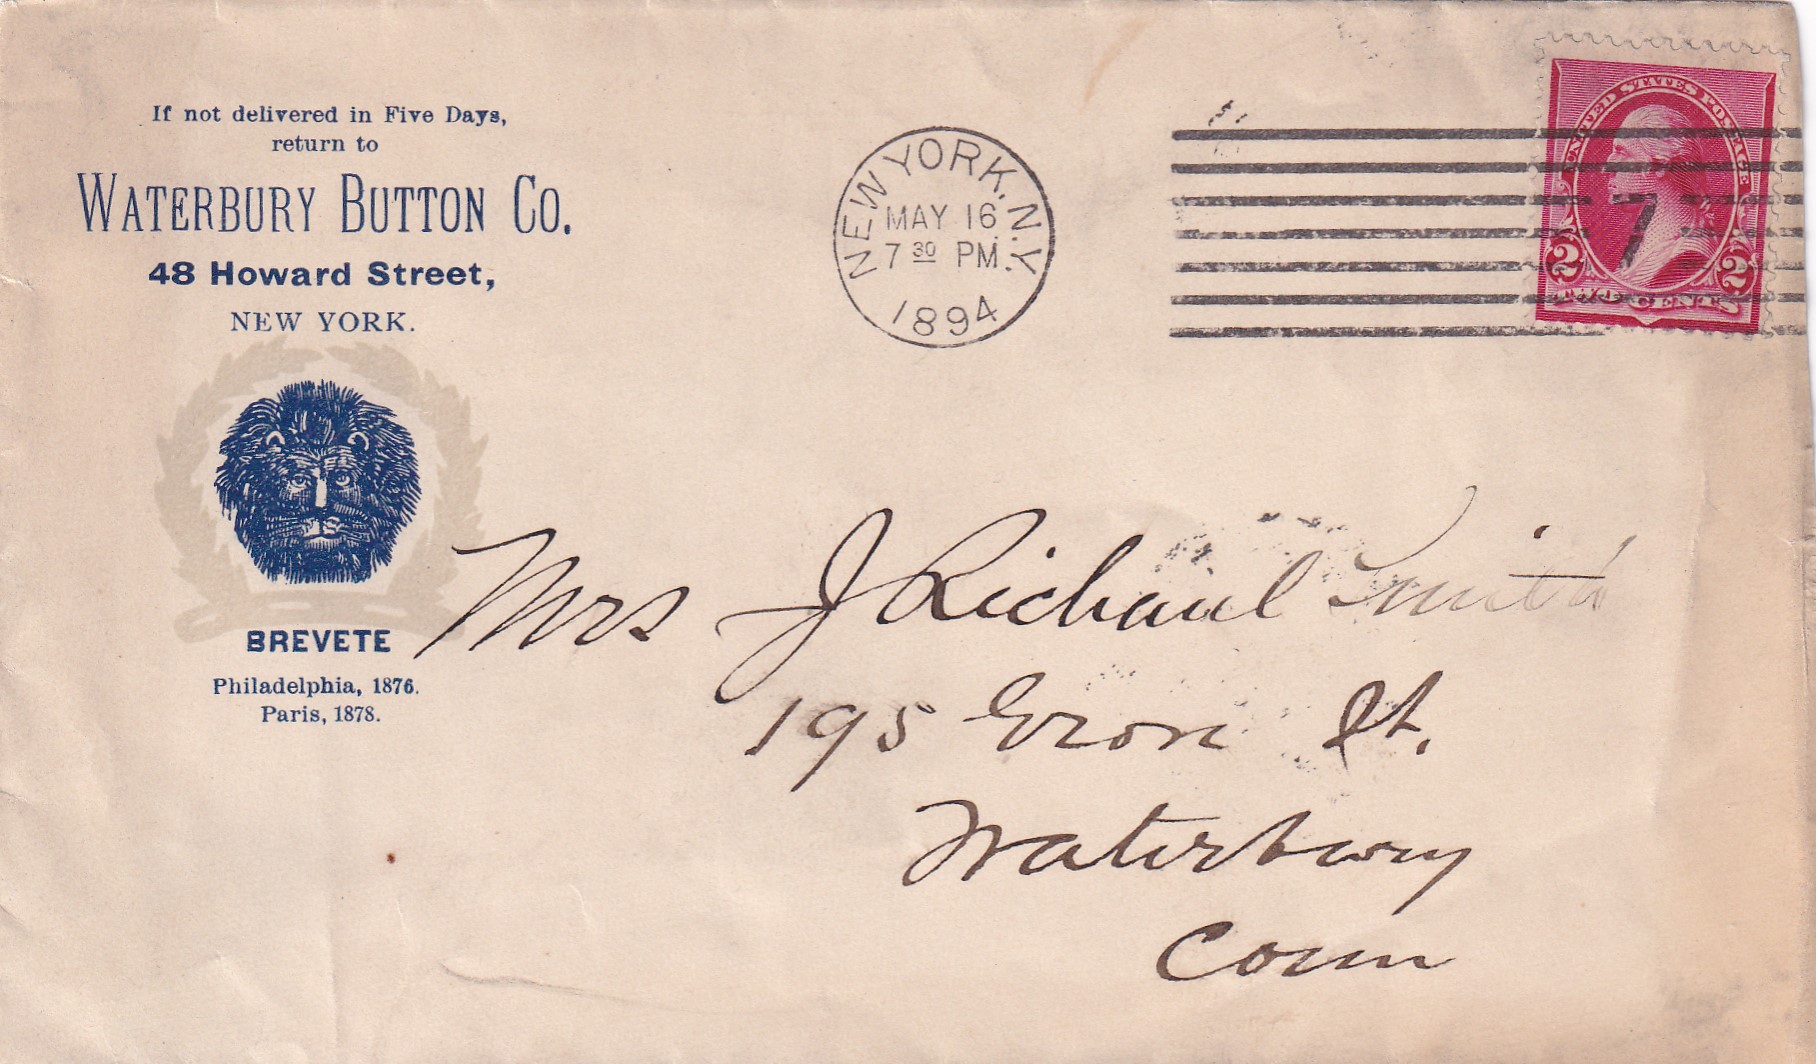 If not delivered in Five Days,
return to
WATERBURY BUTTON CO.
48 Howard Street,
NEW YORK.
BREVETE
Philadelphia, 1876.
Paris, 1878.
NEW YORK, N.Y.
MAY 16
7 30 PM.
1894
UNITED STATES POSTAGE
7
2 2
TWO CENTS
Mrs J Richard Smith
195 Grove St.
Waterbury
Conn